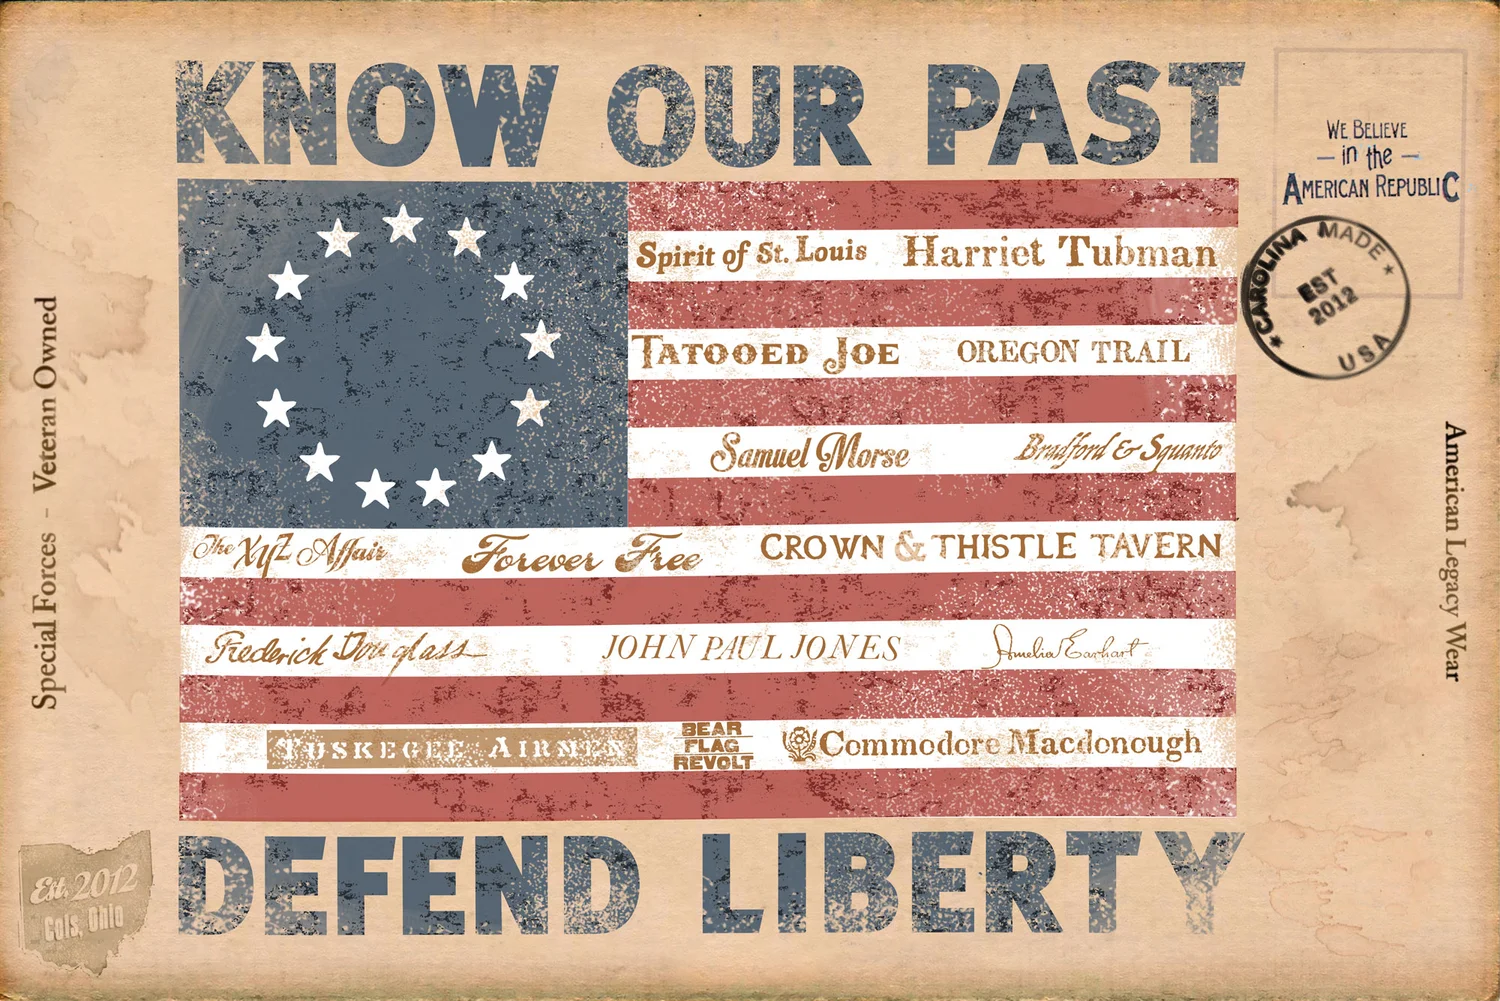 KNOW OUR PAST
WE BELIEVE
in the
AMERICAN REPUBLIC
CAROLINA MADE
EST
2012
USA
Spirit of St. Louis
Harriet Tubman
TATOOED JOE
OREGON TRAIL
Samuel Morse
Bradford & Squanto
The XYZ Affair
Forever Free
CROWN & THISTLE TAVERN
Frederick Douglass
JOHN PAUL JONES
Amelia Earhart
TUSKEGEE AIRMEN
BEAR
FLAG
REVOLT
Commodore Macdonough
DEFEND LIBERTY
Special Forces - Veteran Owned
American Legacy Wear
Est. 2012
Cols, Ohio